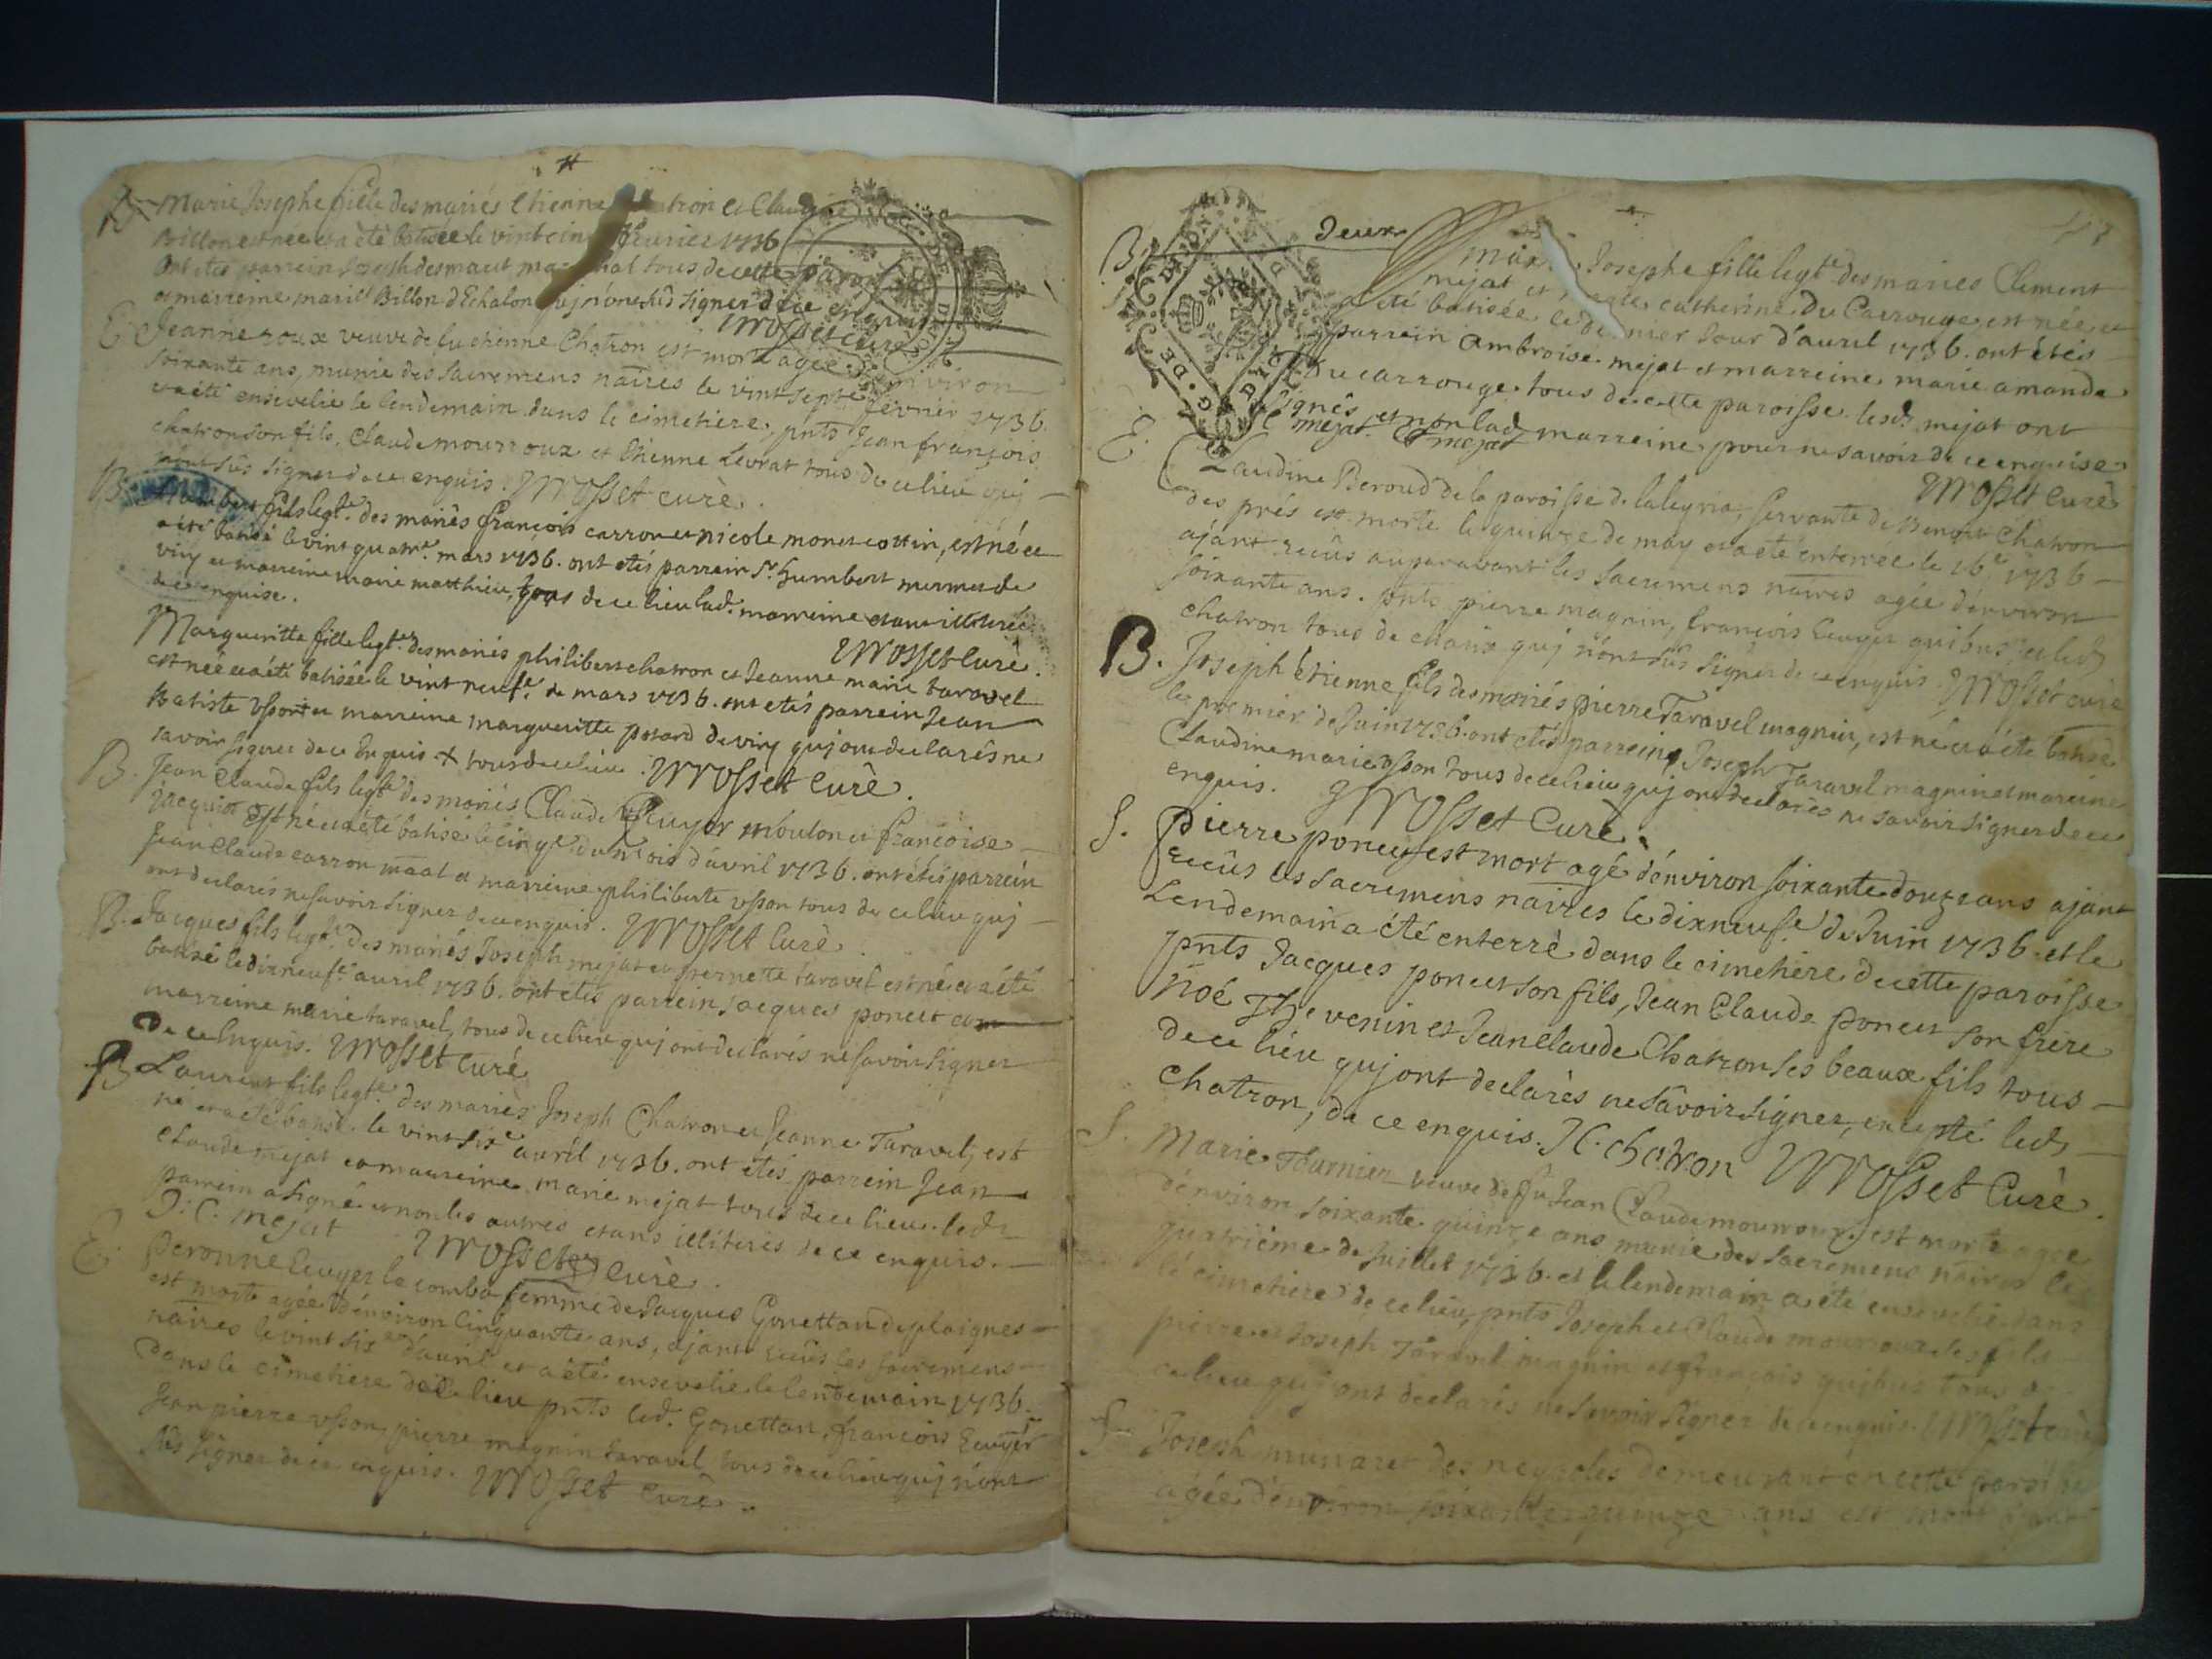 B Marie Josephe fille des mariés Etienne tron et Claudine
Billon est née et a été batisée le vintcin feuriee 1736
Ont etes parrein Joseph desmaut mar hal tous de cette
et marreine marie Billon d'Echalon quj n'ont sud signer de ce enquis
Mosset curé
E Jeanne roux veuve de fu etienne Chatron est morte agée d'environ
soixante ans, munie des sacremens naires le vint sept fevrier 1736
et a été ensevelie le lendemain dans le cimetiere, pnts Jean françois
chatron son fils, Claude mourroux et Etienne Levrat tous de ce lieu quj
n'ont sûs signer de ce enquis. Mosset curè.
B fils legte. des mariés françois carron et nicole monet cottin, est né et
a été batisé le vint quatre. mars 1736. ont etés parrein Sr. humbert mermet de
viry et marreine marie matthieu, tous de ce lieu lad. marreine etant illiterée
de ce enquise.
Mosset Curè.
Margueritte fille legte. des mariés philibert chatron et Jeanne marie taravel
est née et a été batisée le vint neufe. de mars 1736. ont etés parrein Jean
Batiste Vsson et marreine margueritte potard de viry quj ont declarés ne
savoir signer de ce Enquis + tous de ce lieu. Mosset Curè.
B. Jean Claude fils legte des mariés Claude Ecuyer mibulon et françoise
Jacquiot est né et a été batisé le cinqe du mois d'avril 1736. ont étés parrein
Jean Claude carron maal et marreine philiberte vsson tous de ce lieu quj
ont declarés ne savoir signer de ce enquis. Mosset Curè.
B. Jacques fils legte. des mariés Joseph mejat et pernette taravel est né et a été
batisé le dixneufe. auril 1736. ont etés parrein Jacques poncet et
marreine marie taravel, tous de ce lieu quj ont declarés ne savoir signer
De ce Enquis. Mosset Curé
B Laurent fils legte. des mariés Joseph Chatron et Jeanne Taravel, est
né et a été batisé le vint sixe auril 1736. ont étés parrein Jean
Claude mejat et marreine marie mejat tous de ce lieu. led.
parrein a signé et non les autres etans illiterés de ce enquis.
J: C. mejat Mosset curè.
E. Peronne Ecuyer la comba femme de Jacques Gouettan de plaignes
est morte agée d'environ Cinquante ans, ajant recûs les sacremens
naires le vint sixe d'auril et a été ensevelie le lendemain 1736.
Dans le cimetiere de ce lieu pnts led. Gouettan, françois Ecuyer
Jean pierre vsson, pierre magnin taravel tous de ce lieu quj n'ont
sûs signer de ce enquis. Mosset Curè.
Deux
B. Mar Josephe fille legte des mariés Clement
mejat et catherine Du Carrouge est née et
a été batisée le dernier Jour d'auril 1736. ont étés
parrein Ambroise mejat et marreine marie amande
Du carrouge tous de cette paroisse lesd. mejat ont
signés et non lad. marreine pour ne savoir de ce enquise
C mejat. A mejat Mosset Curè
E. Claudine Beroud de la paroisse de laleyria, servante de Benoit Chatron
des prés est morte le quinze de may et a été enterrée le 16e 1736
ajant recûs auparabant les sacremens naires agée d'environ
soixante ans. pnts pierre magnin, françois Ecuyer quibus et led.
chatron tous de choux quj n'ont sûs signer de ce enquis. Mosset curé
B. Joseph Etienne fils des mariés pierre Taravel magnin, est né et a été batisé
le premier de Juin 1736. ont etés parrein Joseph Taravel magnin et mareine
Claudine marie vsson tous de ce lieu quj ont declarés ne savoir signer de ce
enquis. Mosset Curè.
S. Pierre poncet est mort agé d'environ soixante douze ans ajant
recûs les sacremens naires le dixneufe. de Juin 1736. et le
Lendemain a été enterrè dans le cimetiere de cette paroisse
pnts Jacques poncet son fils, Jean Claude poncet son frere
Noé Thevenin et Jean Claude Chatron ses beaux fils tous
de ce lieu quj ont declarès ne sâvoir signer, excepté led.
chatron, de ce enquis. JC. chatron Mosset Curè.
S. Marie Tournier veuve de fû Jean Claude mourroux est morte agée
d'environ soixante quinze ans munie des sacremens naires le
quatriéme de Juillet 1736. et le lendemain a été ensevelie dans
le cimetiere de ce lieu, pnts Joseph et Claude mourroux ses fils
pierre et Joseph Taravel magnin et françois quibus tous de
ce lieu quj ont declarés ne savoir signer de ce enquis. Mosset curè
S Joseph des neyroles demeurant en cette paroisse
agée d'environ soixante quinze ans est mort ajant